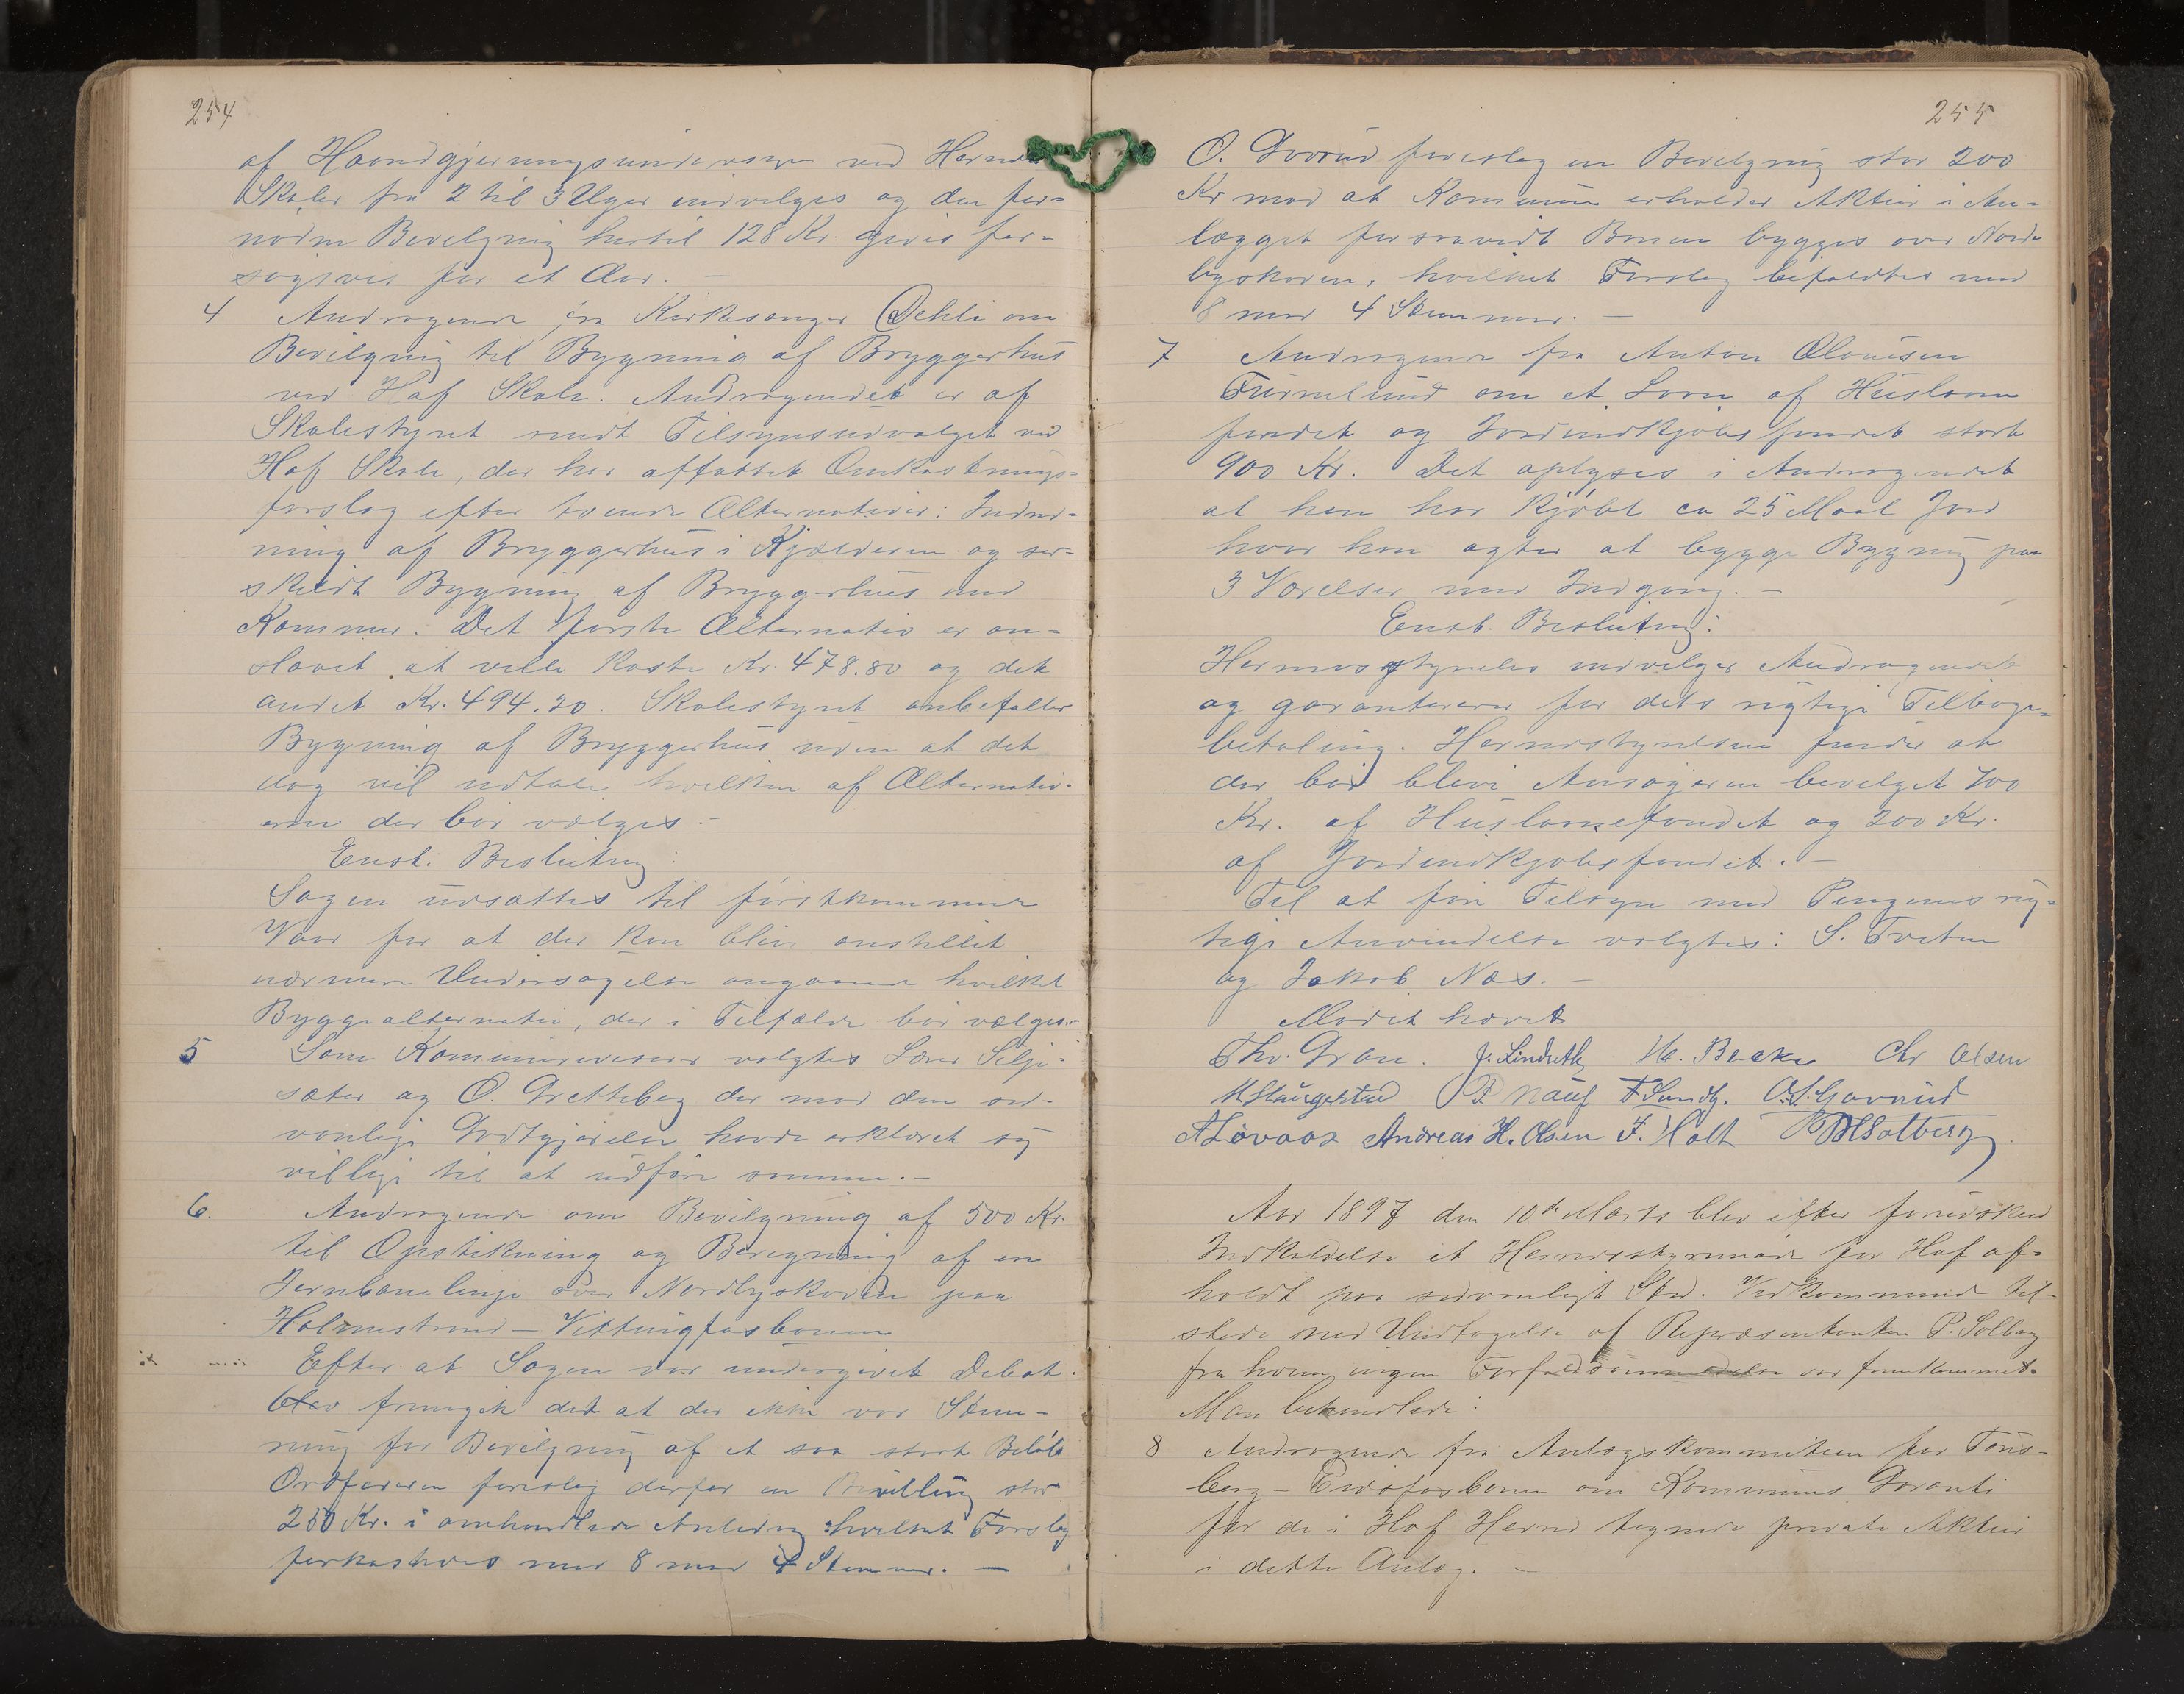 254
af Haandgjerningsundervisn ved Herreds
Skoler fra 2 til 3 Uger indvilges og den for-
nødne Bevilgning hertil 128 Kr. gives for-
søgsvis for et Aar. —
4 Andragende fra Kirkesanger Oehli om
Bevilgning til Bygning af Bryggerhus
ved Hof Skole. Andragendet er af
Skolestyret sendt Tilsynsudvalget ved
Hof Skole, der har affattet Omkostnings-
forslag efter tvende Alternativer: Indred-
ning af Bryggerhus i Kjælderen og sær-
skildt Bygning af Bryggerhus med
Kammer. Det første Alternativ er an-
slaaet at ville koste Kr. 478.80 og det
andet Kr. 494.20. Skolestyret anbefaller
Bygning af Bryggerhus uden at det
dog vil udtale hvilken af Alternativ-
erne der bør vælges. —
Enst. Beslutning:
Sagen udsættes til førstkommende
Vaar for at der kan blive anstillet
nærmere Undersøgelse angaaende hvilket
Byggealternativ, der i Tilfælde bør vælges. —
5 Som Kommunerevisorer valgtes Lærer Silje-
sæter og O. Gretteberg der mod den sed-
vanlige Godtgjørelse havde erklæret sig
villige til at udføre samme. —
6. Andragende om Bevilgning af 500 Kr.
til Opstikning og Beregning af en
Jernbanelinje over Nordbyskoven paa
Holmestrand — Vittingfosbanen
Efter at Sagen var undergivet Debat
blev fremgik det at der ikke var Stem-
ning for Bevilgning af et saa stort Beløb
Ordføreren foreslog derfor en Bevilling stor
250 Kr. i omhandlede Anledning hvilket Forslag
forkastedes med 8 mod 4 Stemmer. —
255
O. Gvorud foreslog en Bevilgning stor 200
Kr mod at Kommunen erholder Aktier i An-
lægget forsaavidt Banen bygges over Nord-
byskoven, hvilket Forslag bifaldtes med
8 mod 4 Stemmer. —
7 Andragende fra Anton Olausen
Furuelund om et Laan af Huslaane
fondet og Jordindkjøbsfondet stort
900 Kr. Det oplyses i Andragendet
at han har kjøbt ca 25 Maal Jord
hvor han agter at bygge Bygning paa
3 Værelser med Indgang. —
Enst. Beslutning:
Herredsstyrelsen indvilger Andragendet
og garanterer for dets rigtige Tilbage-
betaling. Herredsstyrelsen finder at
der bør blive Ansøgeren bevilget 700
Kr. af Huslaanefondet og 200 Kr.
af Jordindkjøbsfondet. —
Til at føre Tilsyn med Pengenes rig-
tige Anvendelse valgtes: S. Tveten
og Jakob Næs. —
Mødet hævet
Thv. Gran. J. Lindseth H. Bakke Chr Olsen
M Haugestad P. Nauf F Sundby. O. A. Gavrud
A Løvaas Andreas H. Olsen F. Holt P Solberg
Aar 1897 den 10de Marts blev efter forudskeed
Indkaldelse et Herredsstyremøde for Hof af-
holdt paa sedvanligt Sted. Vedkommende til-
stede med Undtagelse af Repræsentanten P. Solberg
fra hvem ingen Forfaldsanmeldelse var fremkommet.
Man behandlede:
8 Andragende fra Anlægskommiteen for Tøns-
berg — Eidsfosbanen om Kommunens Garanti
for de i Hof Herred tegnede private Aktier
i dette Anlæg. —